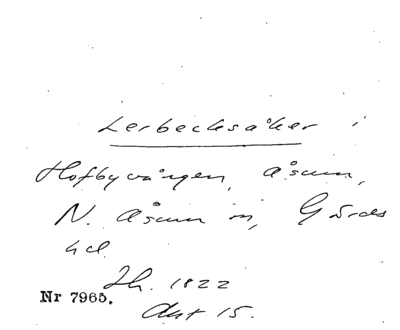 Lerbecksåker i
Hofbyvången, Åsum,
N. Åsum sn, Gärds
hd.
Sh. 1822
Nr 7965.
Akt 15.